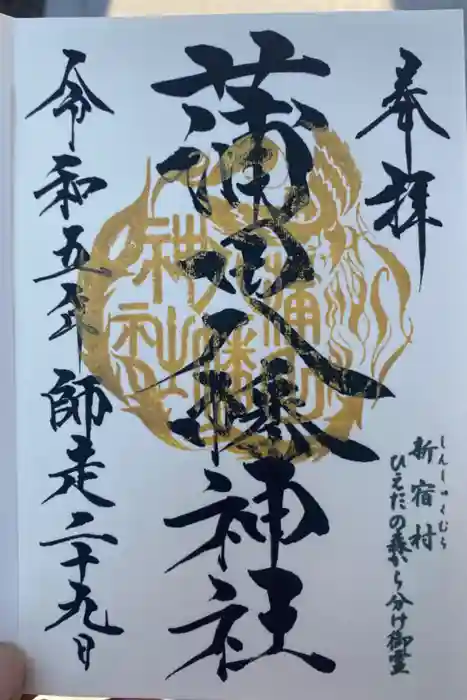 奉拝
しんしゅくむら
新宿村
ひえだの森から分け御霊
蒲田八幡神社
蒲田
八幡
神社
令和五年師走二十九日